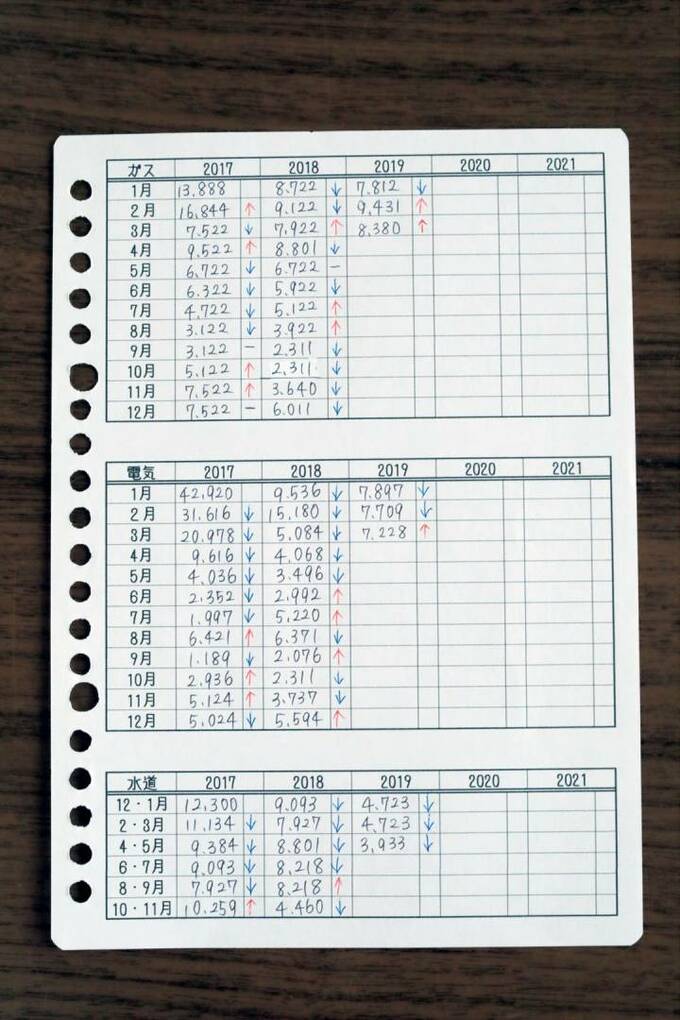 ガス 2017 2018 2019 2020 2021
1月 13,888 8.722 ↓ 7.812 ↓
2月 16,844 ↑ 9.122 ↓ 9,431 ↑
3月 7.522 ↓ 7.922 ↑ 8.380 ↑
4月 9.522 ↑ 8.801 ↓
5月 6.722 ↓ 6.722 −
6月 6.322 ↓ 5.922 ↓
7月 4.722 ↓ 5.122 ↑
8月 3.122 ↓ 3.922 ↑
9月 3.122 − 2.311 ↓
10月 5.122 ↑ 2,311 ↓
11月 7.522 ↑ 3.640 ↓
12月 7.522 − 6.011 ↓
電気 2017 2018 2019 2020 2021
1月 42,920 9.536 ↓ 7.897 ↓
2月 31.616 ↓ 15,180 ↓ 7.709 ↓
3月 20,978 ↓ 5.084 ↓ 7.228 ↑
4月 9.616 ↓ 4.068 ↓
5月 4.036 ↓ 3.496 ↓
6月 2.352 ↓ 2.992 ↑
7月 1.997 ↓ 5.220 ↑
8月 6.421 ↑ 6.371 ↓
9月 1.189 ↓ 2.076 ↑
10月 2.936 ↑ 2.311 ↓
11月 5.124 ↑ 3.737 ↓
12月 5.024 ↓ 5.594 ↑
水道 2017 2018 2019 2020 2021
12・1月 12,300 9.093 ↓ 4.723 ↓
2・3月 11,134 ↓ 7.927 ↓ 4.723 ↓
4・5月 9.384 ↓ 8.801 ↓ 3,933 ↓
6・7月 9.093 ↓ 8,218 ↓
8・9月 7.927 ↓ 8.218 ↑
10・11月 10.259 ↑ 4.460 ↓